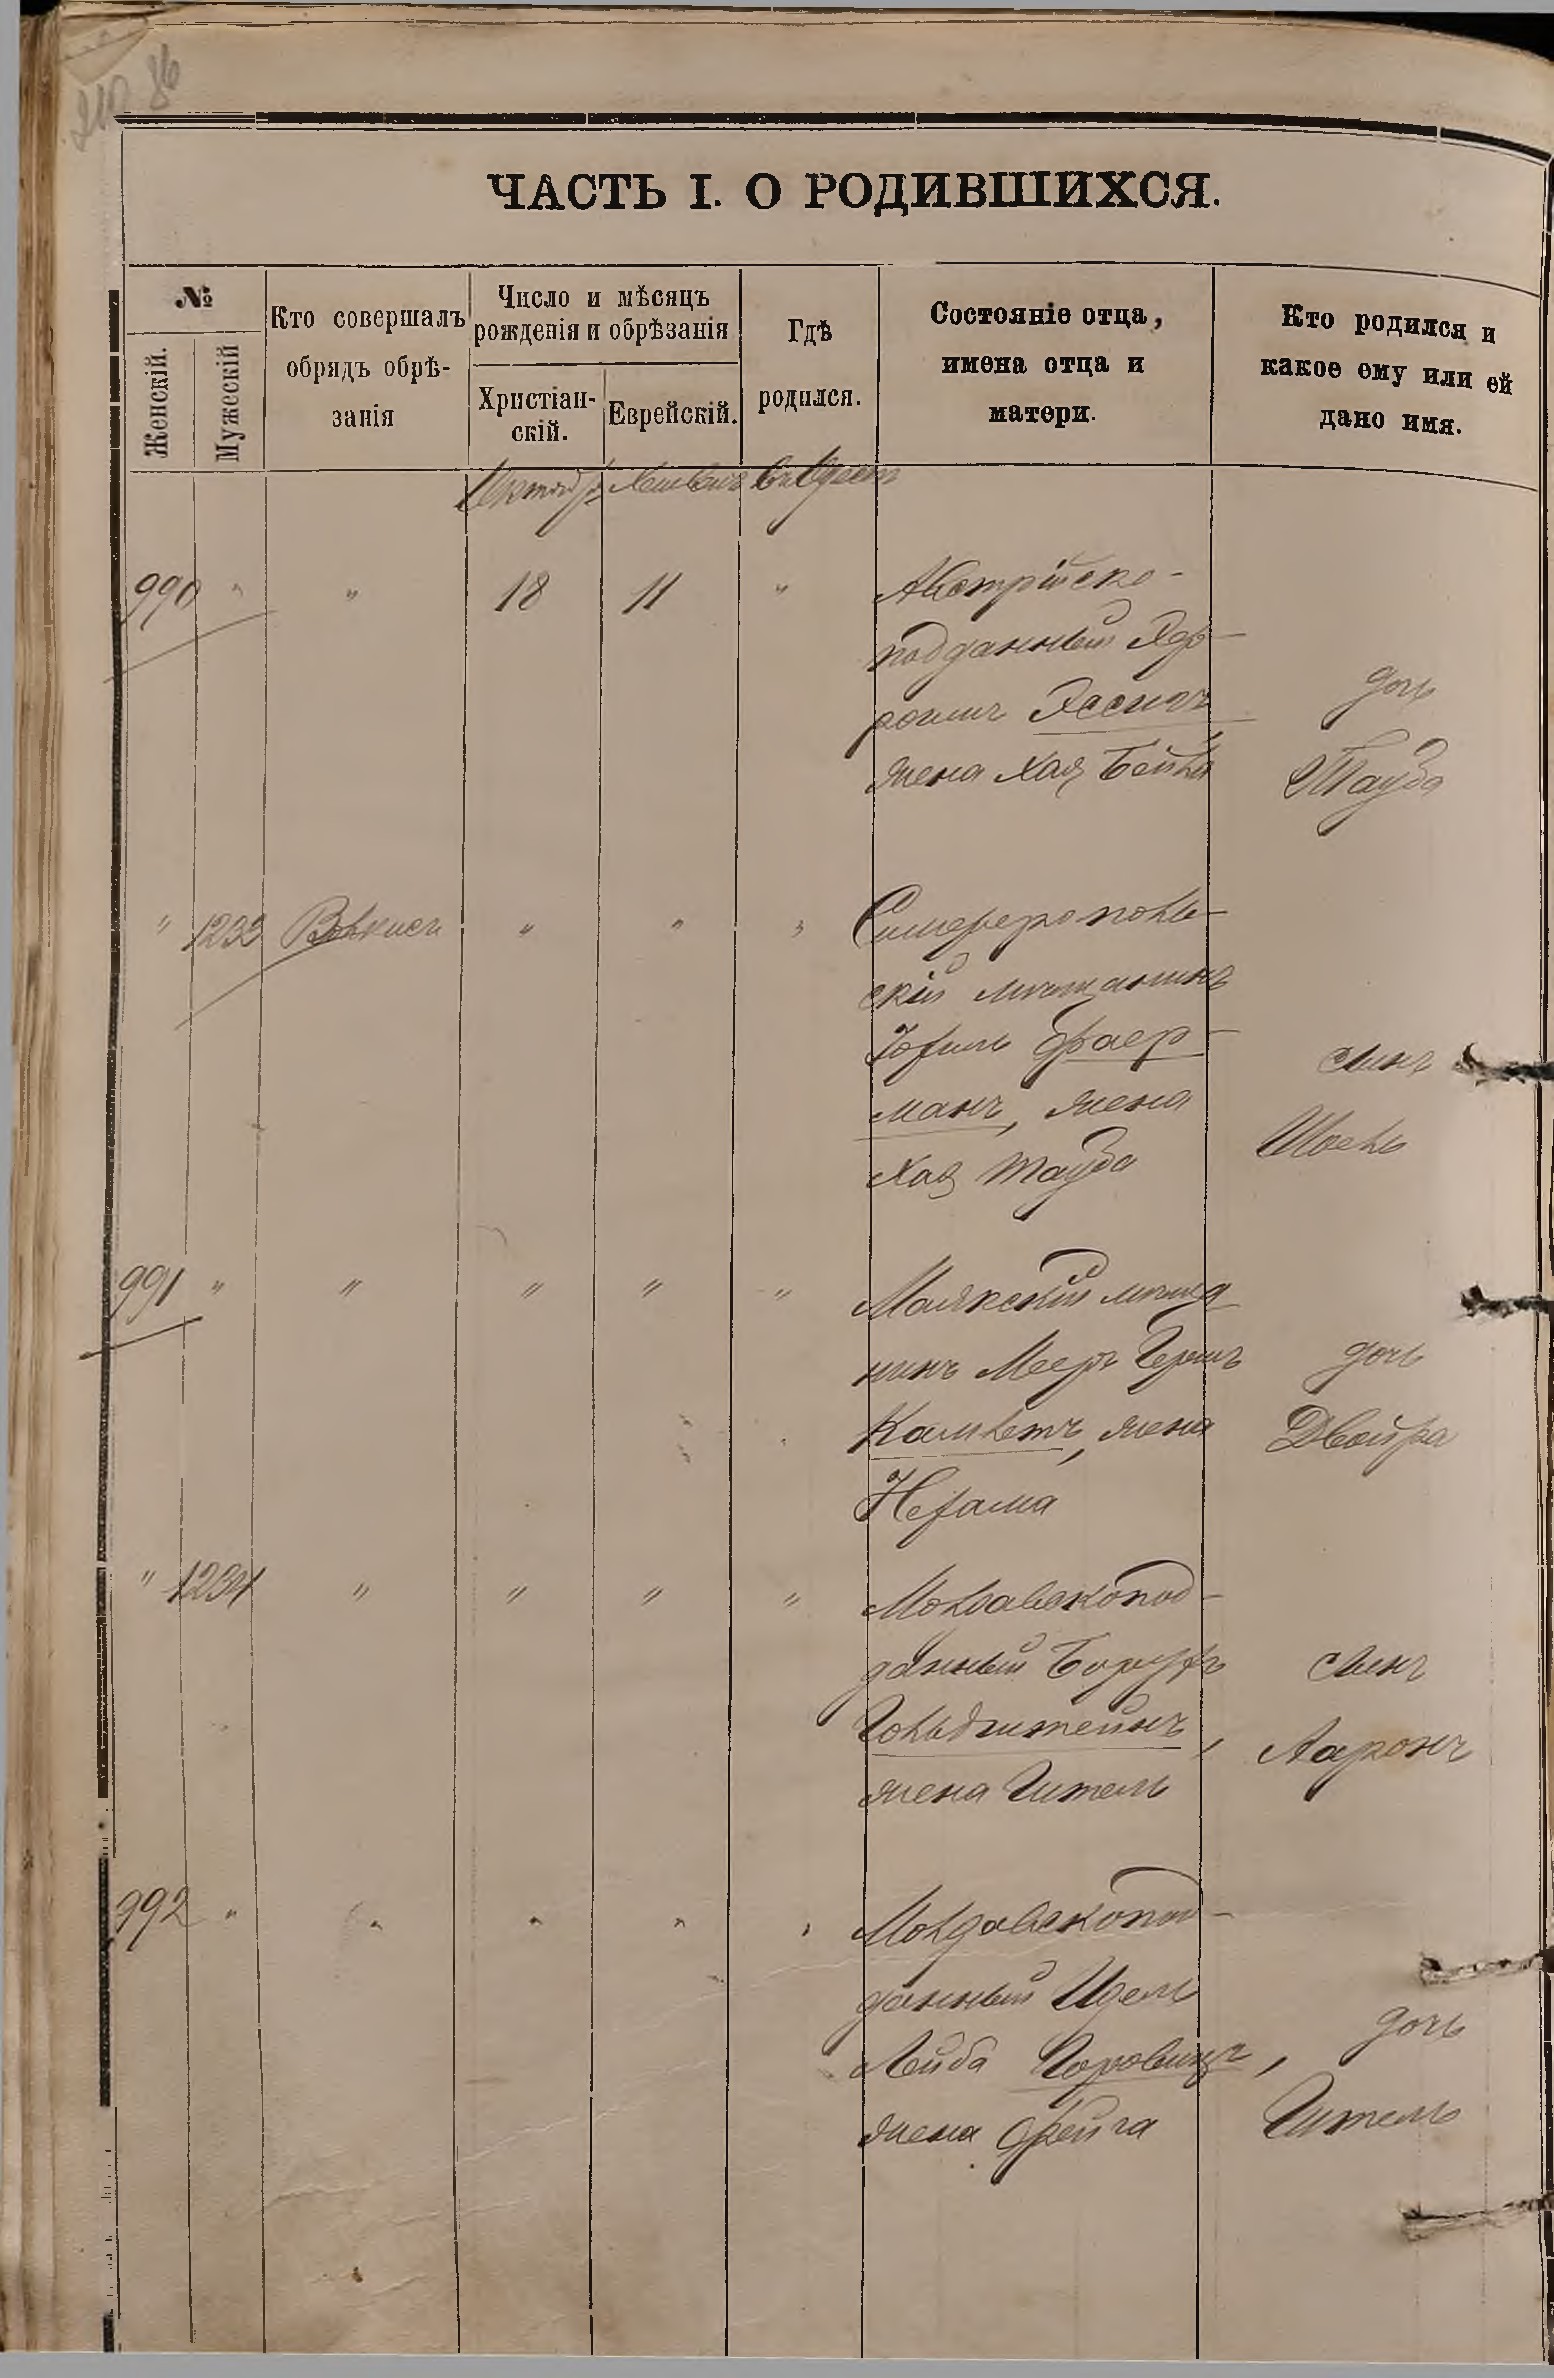 86
ЧАСТЬ I. О РОДИВШИХСЯ.
№
Женскій.
Мужескій
Кто совершалъ
обрядъ обрѣ-
занія
Число и мѣсяцъ
рожденія и обрѣзанія
Христіан-
скій.
Еврейскій.
Гдѣ
родился.
Состояніе отца,
имена отца и
матери.
Кто родился и
какое ему или ей
дано имя.
Октябр. Хешван въ Одессѣ
990 " " 18 11 " Австрійско-
подданный
жена Хая Бейла
дочь
Тауба
" 1233 " " " Симферополь-
скій мѣщанинъ
Іохиль Фаер-
манъ, жена
Хая Тауба
сынъ
991 " " " " " Маякскій мѣща
нинъ Мееръ Гершъ
жена
Нехама
дочь
Двойра
" 1234 " " " " Молдавскопод-
данный Борухъ
Гольдштейнъ,
жена Гитель
сынъ
Ааронъ
992 " " " " " Молдавскопод-
данный Идель
Лейба Горовицъ,
жена Фейга
дочь
Гитель